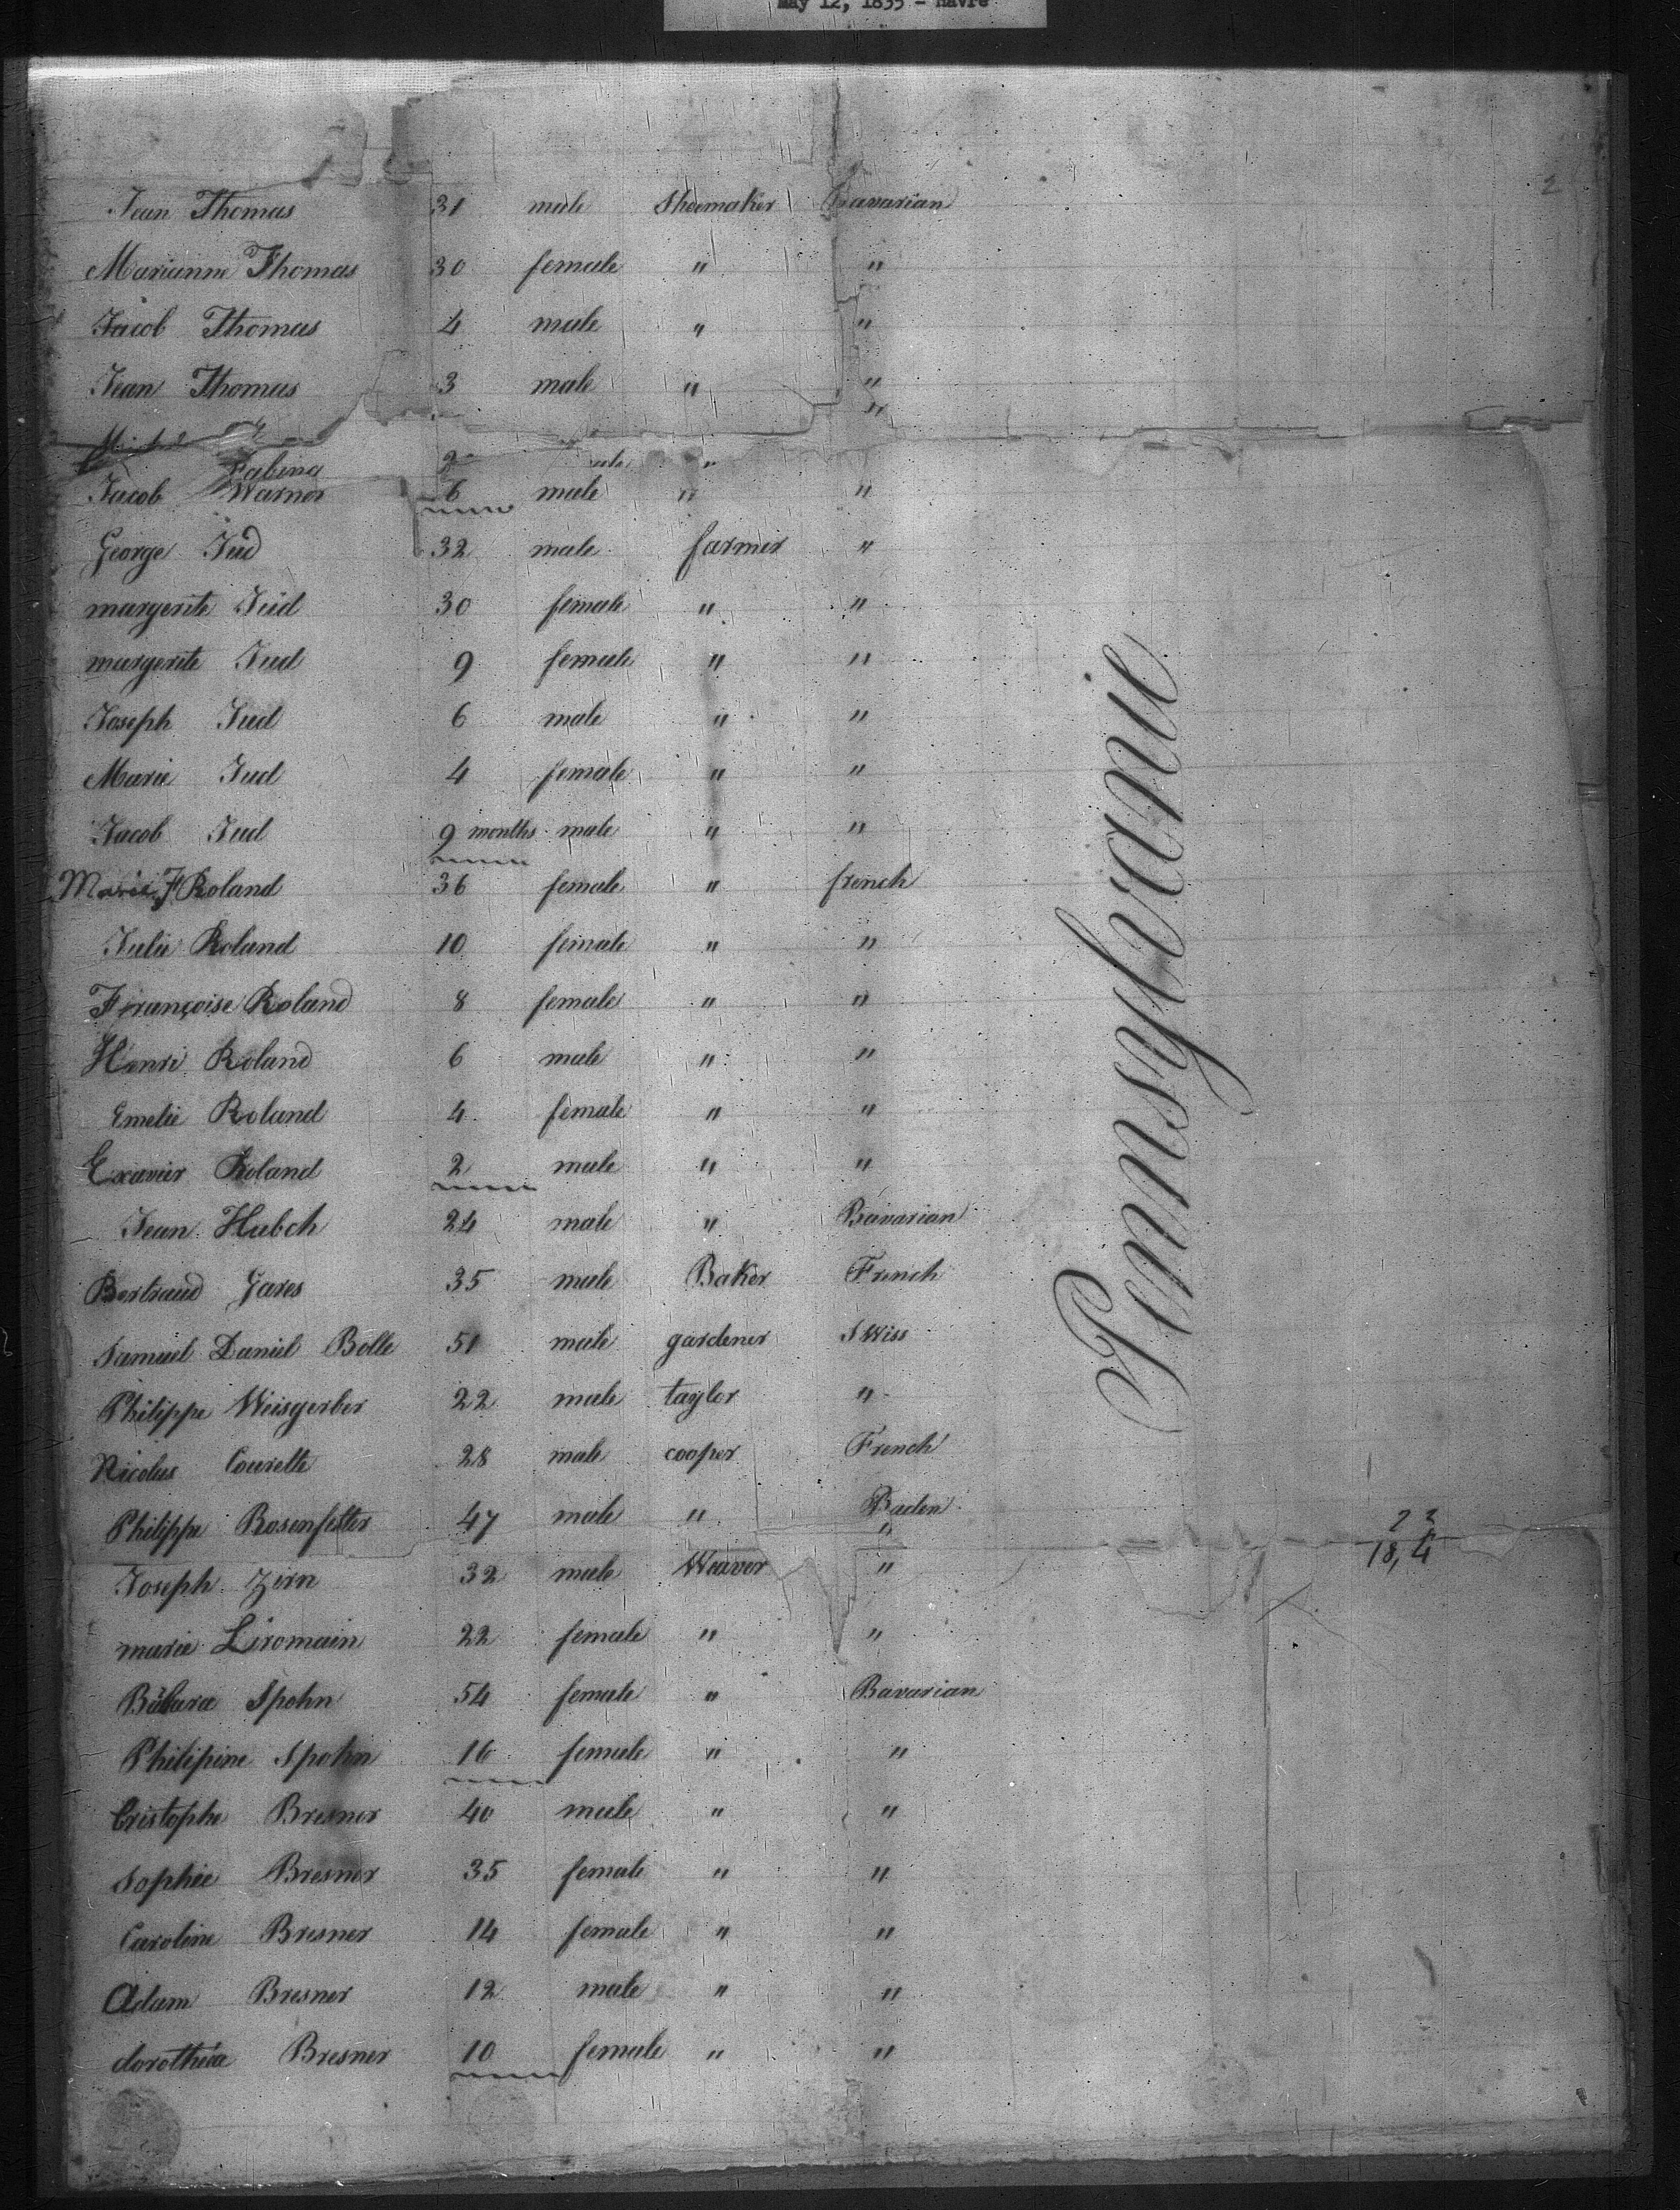 May 12, 1835 - Havre
2
Jean Thomas 31 male Shoemaker Bavarian
Marianne Thomas 30 female " "
Jacob Thomas 4 male " "
Jean Thomas 3 male " "
"
2 "
Fabina
Jacob Warner 6 male " "
George Jud 32 male farmer "
margerite Jud 30 female " "
margerite Jud 9 female " "
Joseph Jud 6 male " "
Marie Jud 4 female " "
Jacob Jud 9 months male " "
Marie F Roland 36 female " french
Julie Roland 10 female " "
Françoise Roland 8 female " "
Henri Roland 6 male " "
Emelie Roland 4 female " "
Exavier Roland 2 male " "
Jean Hubch 24 male " Bavarian
Bertraud Gares 35 male Baker French
Samuel Daniel Bolle 51 male gardener Swiss
Philippe Weisgerber 22 male taylor "
Nicolas Courelle 28 male cooper French
Philippe Rosenfelter 47 male " Baden
"
2 2
18,4
Joseph Zirn 32 male Weaver "
marie Liromain 22 female " "
Spohn 54 female " Bavarian
Philipine Spohn 16 female " "
Cristophe Bresner 40 male " "
Sophie Bresner 35 female " "
Caroline Bresner 14 female " "
Adam Bresner 12 male " "
dorothéa Bresner 10 female " "
Pennsylvanie